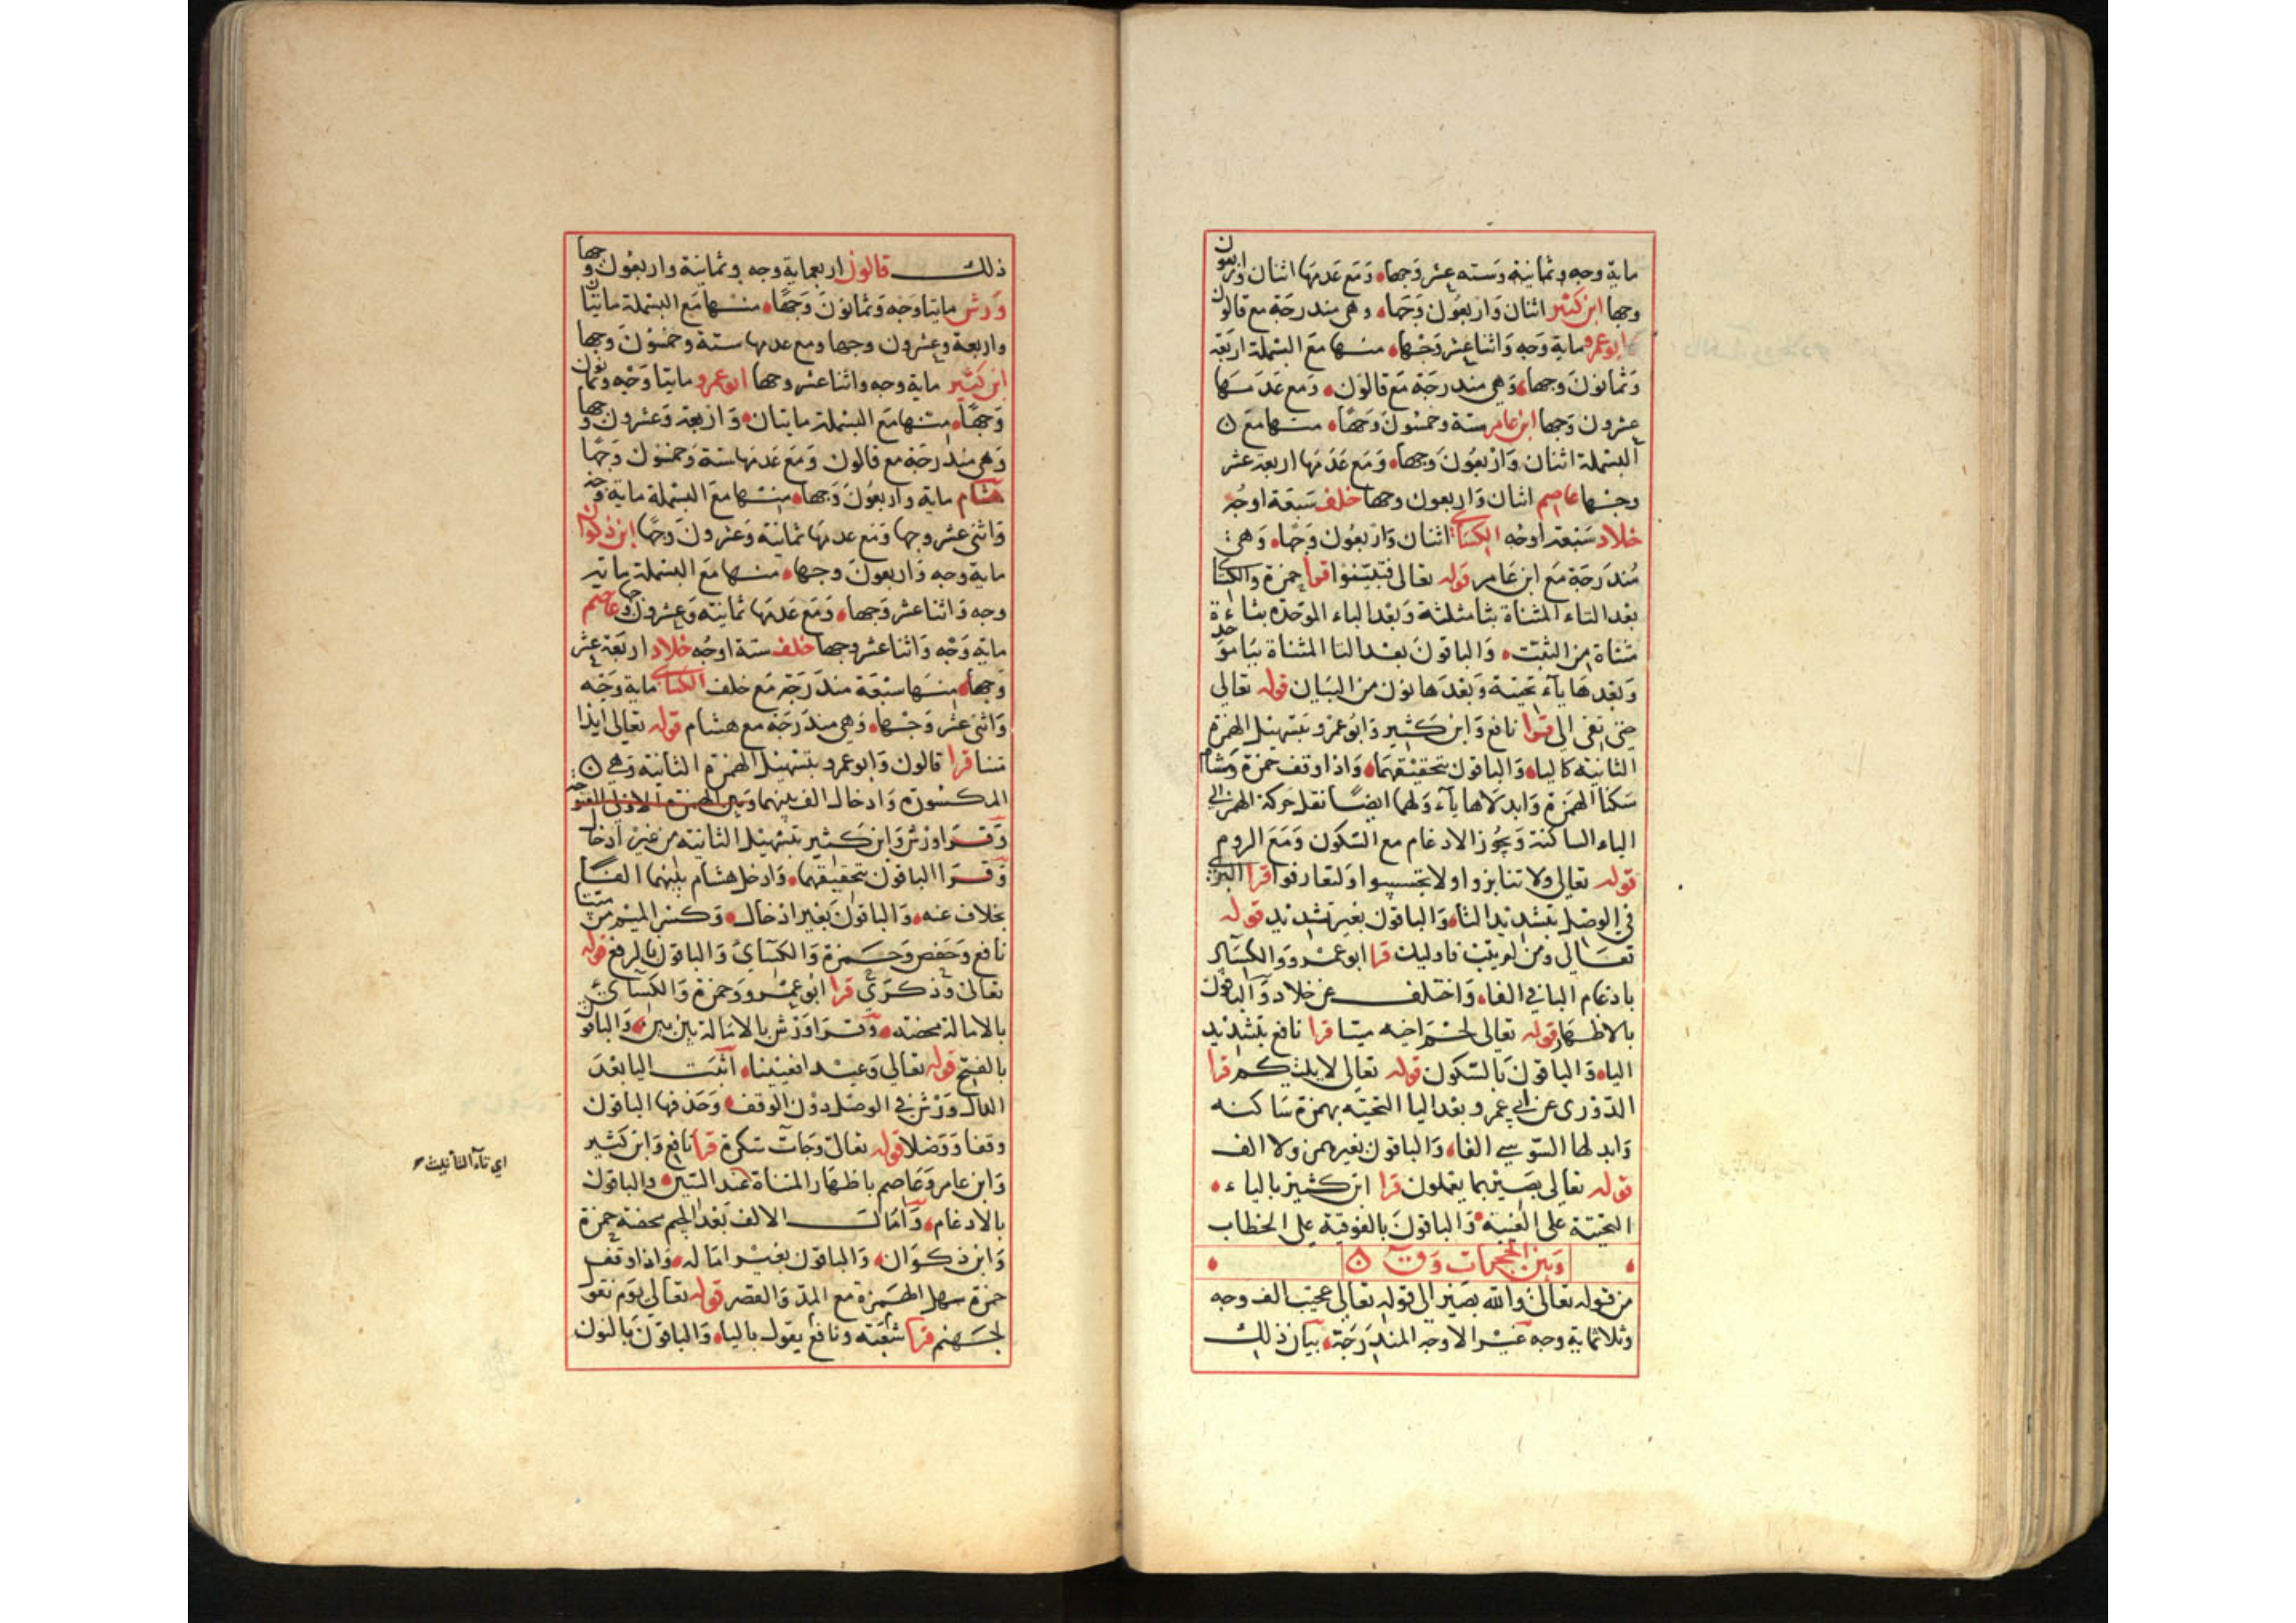 ماية وجه وثمانية وسته عشر وجها ومع عدمها اثنان واربعون
وجها ابن كثير اثنان واربعون وجها وهي مندرجة مع قالون
ابو عمرو ماية وجه واثنا عشر وجها منها مع البسملة اربعة
وثمانون وجها وهي مندرجة مع قالون ومع عدمها
عشرون وجها ابن عامر ستة وخمسون وجها منها مع
البسملة اثنان واربعون وجها ومع عدمها اربعة عشر
وجها عاصم اثنان واربعون وجها خلف سبعة اوجه
خلاد سبعة اوجه الكساي اثنان واربعون وجها وهي
مندرجة مع ابن عامر قوله تعالى فتبينوا قرا حمزة والكساي
بعد التاء المثناة بثا مثلثة وبعد الباء الموحدة بتاء
مثناة من التثبت والباقون بعد التا المثناة ببا موحدة
وبعدها ياء تحتية وبعدها نون من البيان قوله تعالى
حتى تفى الى قرا نافع وابن كثير وابو عمرو بتسهيل الهمزة
الثانية كاليا والباقون بتحقيقهما واذا وقف حمزة وهشام
سكنا الهمزة وابدلاها ياء ولهما ايضا نقل حركة الهمز الى
الياء الساكنة ويجوز الادغام مع السكون ومع الروم
قوله تعالى ولا تنابزوا ولا تجسسوا ولتعارفوا قرا البزي
في الوصل بتشديد التا والباقون بغير تشديد قوله
تعالى ومن لم يتب فاوليك قرا ابو عمرو والكساي
بادغام البا في الفا واختلف عن خلاد والباقون
بالاظهار قوله تعالى لحم اخيه ميتا قرا نافع بتشديد
اليا والباقون بالسكون قوله تعالى لا يلتكم قرا
الدوري عن ابي عمرو بعد اليا التحتيه بهمزة ساكنه
وابدلها السوسي الفا والباقون بغير همز ولا الف
قوله تعالى بصير بما يعملون قرا ابن كثير بالياء
التحتية على الغيبة والباقون بالفوقية على الخطاب
وبين الحجرات وق
من قوله تعالى والله بصير الى قوله تعالى عجيب الف وجه
وثلاثماية وجه غير الاوجه المندرجة بيان ذلك
ذلك قالون اربعماية وجه وثمانية واربعون وجها
ورش مايتا وجه وثمانون وجها منها مع البسملة مايتان
واربعة وعشرون وجها ومع عدمها ستة وخمسون وجها
ابن كثير ماية وجه واثنا عشر وجها ابو عمرو مايتا وجه وثمانون
وجها منها مع البسملة مايتان واربعة وعشرون وجها
وهي مندرجة مع قالون ومع عدمها ستة وخمسون وجها
هشام ماية واربعون وجها منها مع البسملة ماية وجه
واثنى عشر وجها ومع عدمها ثمانية وعشرون وجها ابن ذكوان
ماية وجه واربعون وجها منها مع البسملة ماية
وجه واثنا عشر وجها ومع عدمها ثمانية وعشرون وجها عاصم
ماية وجه واثنا عشر وجها خلف ستة اوجه خلاد اربعة عشر
وجها منها سبعة مندرجة مع خلف الكساي ماية وجه
واثنى عشر وجها وهي مندرجة مع هشام قوله تعالى ايذا
متنا قرا قالون وابو عمرو بتسهيل الهمزة الثانية وهي
المكسورة وادخال الف بينهما وبين الهمزة الاولى المفتوحة
وقرا ورش وابن كثير بتسهيل الثانية من غير ادخال
وقرا الباقون بتحقيقهما وادخل هشام بينهما الفا
بخلاف عنه والباقون بغير ادخال وكسر الميم من متنا
نافع وحفص وحمزة والكساي والباقون بالرفع قوله
تعالى وذكرى قرا ابو عمرو وحمزة والكساي
بالامالة محضة وقرا ورش بالامالة بين بين والباقون
بالفتح قوله تعالى وعيد افعيينا اثبت اليا بعد
الدال ورش في الوصل دون الوقف وحذفها الباقون
وقفا ووصلا قوله تعالى وجات سكرة قرا نافع وابن كثير
وابن عامر وعاصم باظهار المثناة عند السين والباقون
بالادغام وامالت الالف بعد الجيم محضة حمزة
وابن ذكوان والباقون بغير اماله واذا وقف
حمزة سهل الهمزة مع المد والقصر قوله تعالى يوم نقول
لجهنم قرا شعبة ونافع يقول باليا والباقون بالنون
اي تاء التانيث